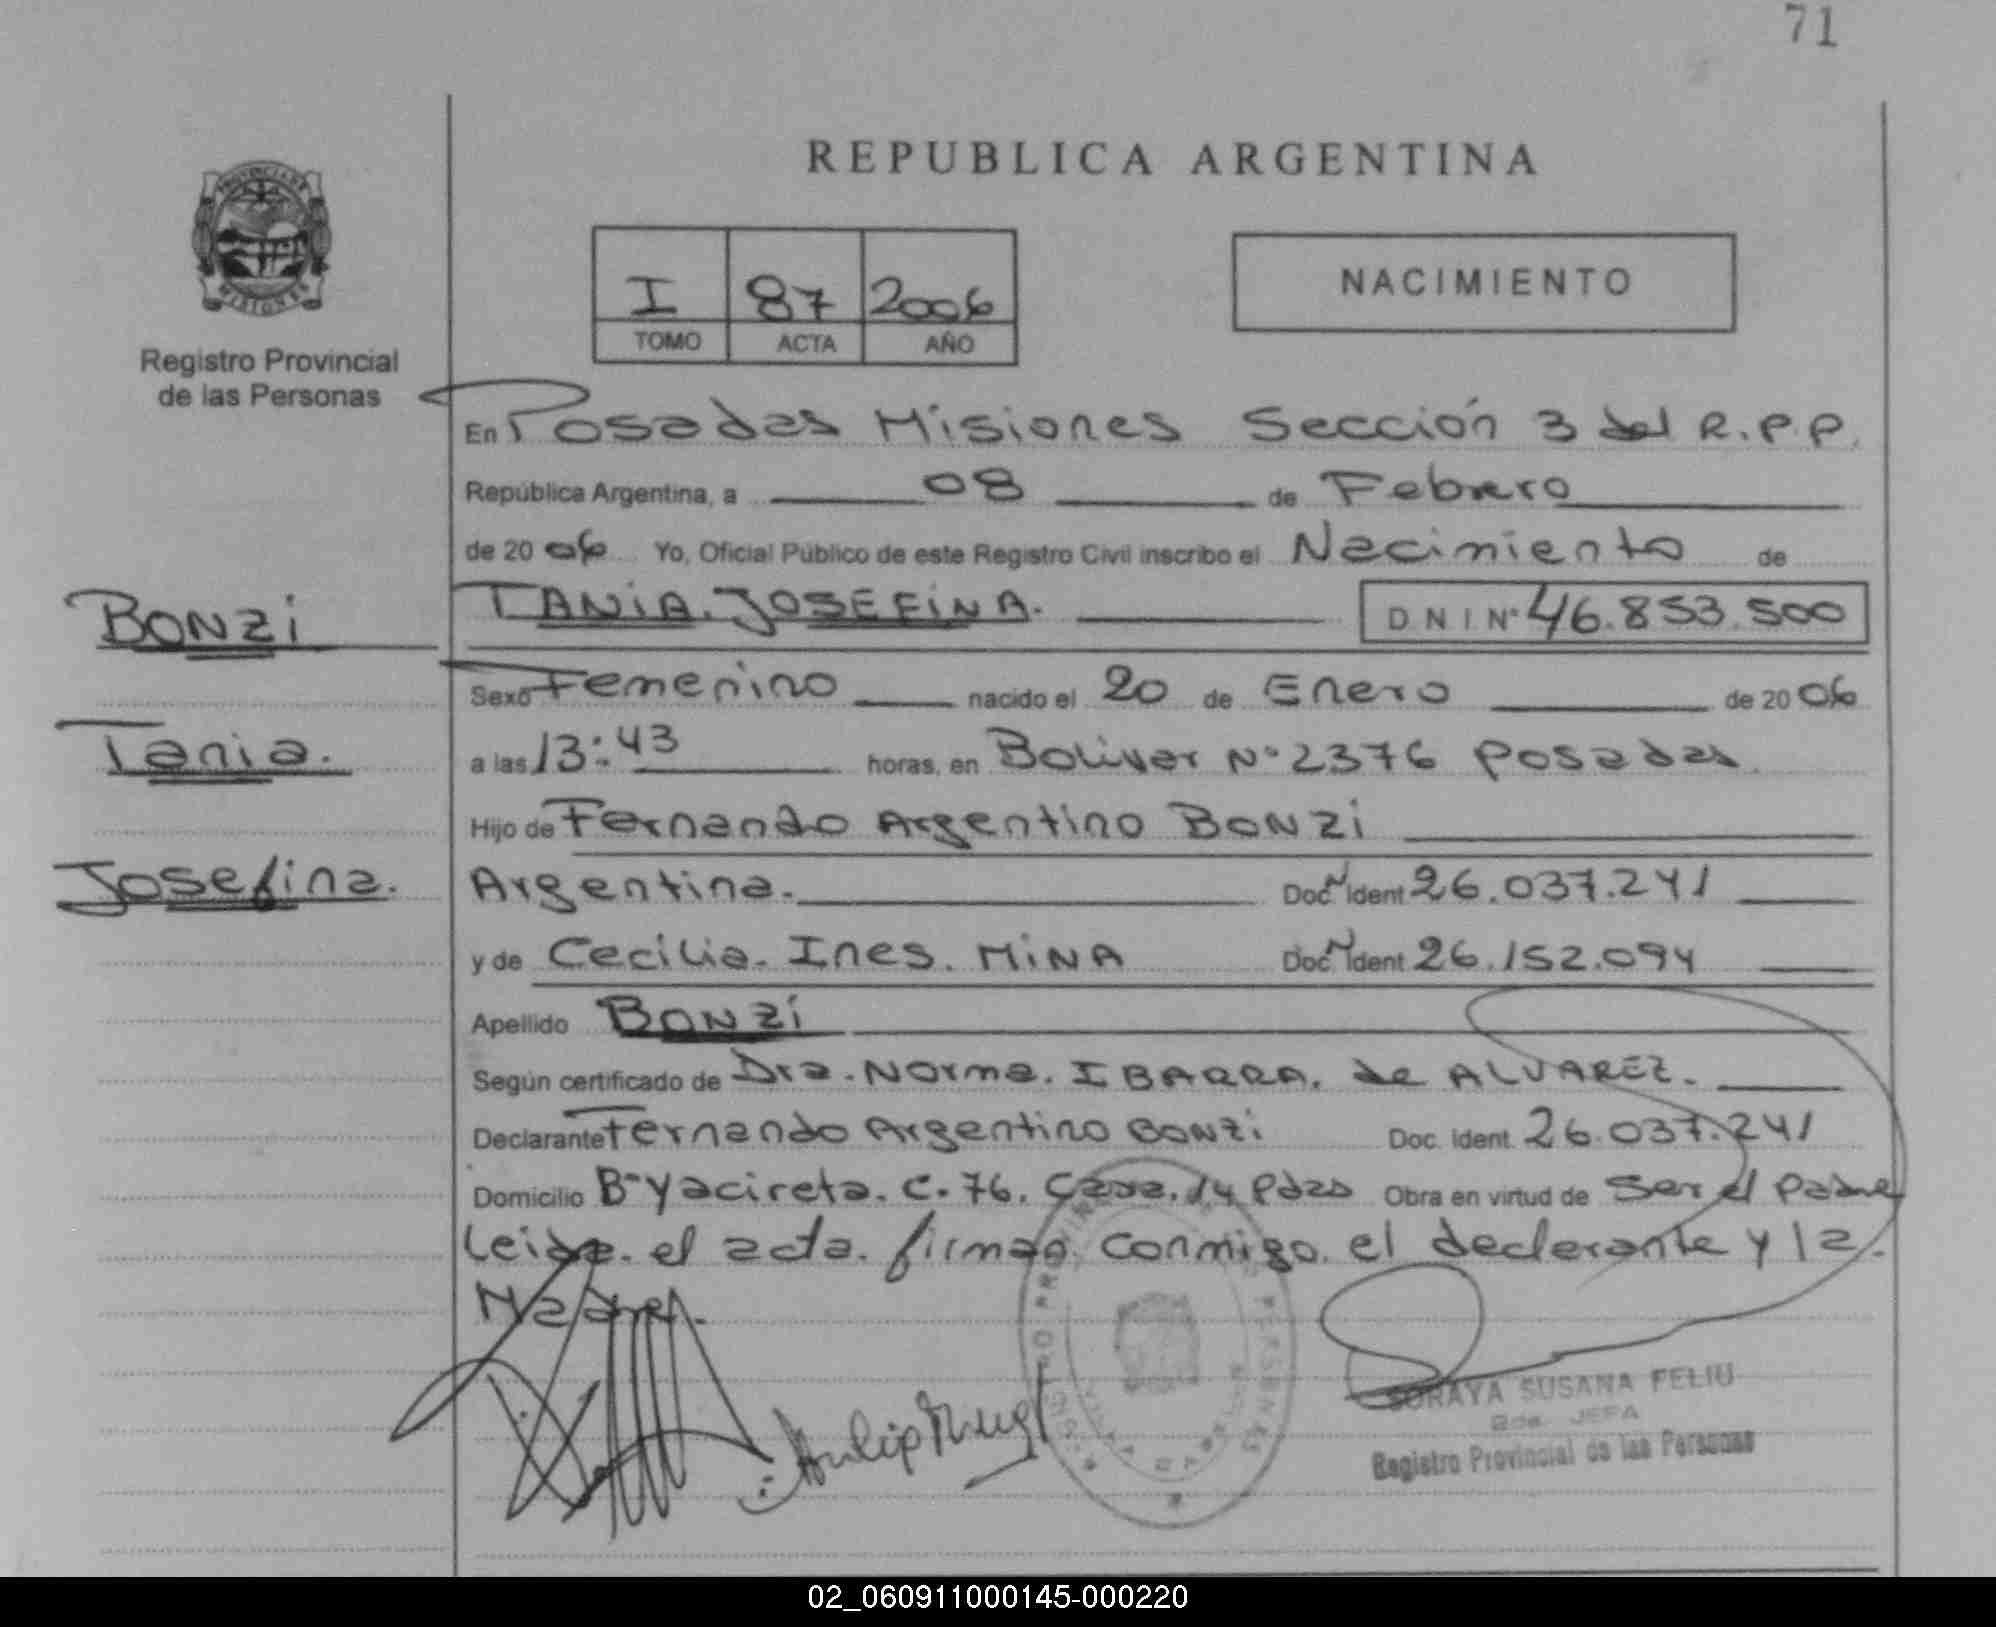 71
REPUBLICA ARGENTINA
PROVINCIA DE
MISIONES
Registro Provincial
de las Personas
I 87 2006
TOMO ACTA AÑO
NACIMIENTO
En Posadas Misiones Sección 3 del R.P.P.
República Argentina, a 08 de Febrero
de 20 06 Yo, Oficial Público de este Registro Civil inscribo el Nacimiento de
BONZi
TANIA. JOSEFINA. D N I N° 46.853.500
Sexo Femenino nacido el 20 de Enero de 20 06
Tania.
a las 13:43 horas, en Bolivar N° 2376 Posadas.
Hijo de Fernando Argentino BONZi
Josefina.
Argentina. Doc N Ident 26.037.241
y de Cecilia. Ines. MiNA Doc N Ident 26.152.094
Apellido BONZi
Según certificado de Dra. Norma. IBARRA. de ALVAREZ.
Declarante Fernando Argentino BONZi Doc. Ident. 26.037.241
Domicilio B- Yacireta. C. 76. Casa. 14 Pdas Obra en virtud de Ser el Padre
Leida. el acta. firman. conmigo. el declarante y la.
Madre.
SORAYA SUSANA FELIU
JEFA
Registro Provincial de las Personas
02_060911000145-000220